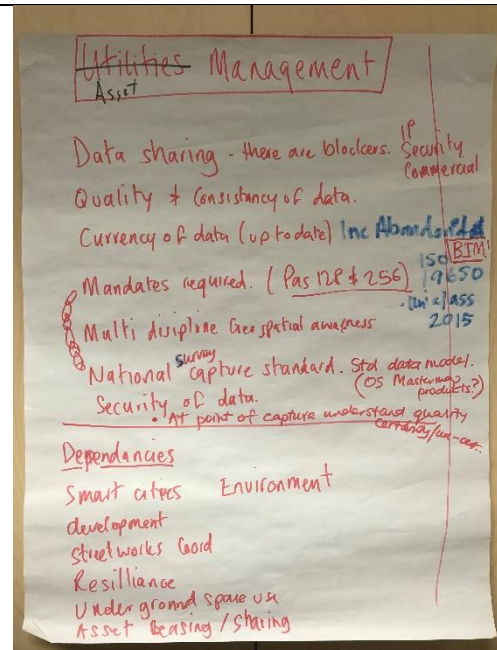 Utilities Management
Asset
Data sharing - there are blockers. IP
Security
Commercial
Quality & Consistancy of data.
Currency of data (up to date) Inc Abandoned
BIM
ISO 19650
Uniclass
2015
Mandates required. (Pas 128 & 256)
Multi disipline Geospatial awarness
National survey capture standard. Std data model.
(OS Mastermap
products?)
Security of data.
• At point of capture understand quality
certainty/un-cer..
Dependancies
Smart cities Environment
development
Streetworks Coord
Resilliance
Underground space use
Asset Leasing / Sharing